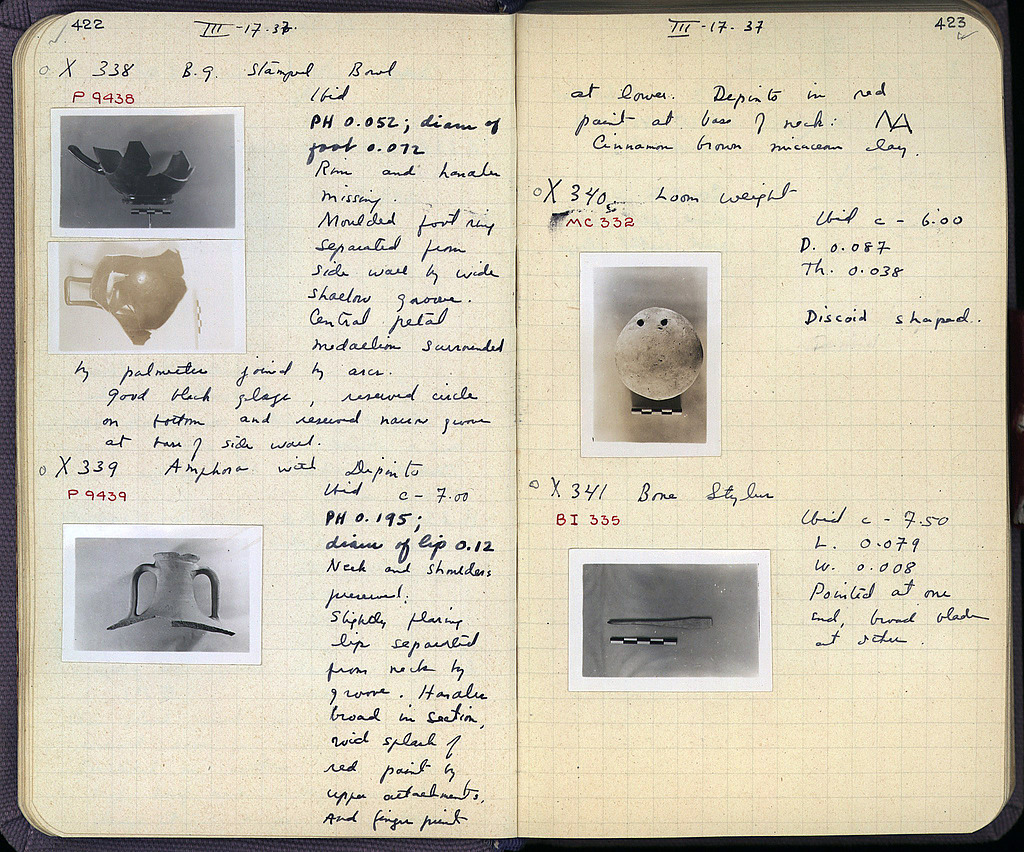 422
III -17.37.
X 338 B.g. Stamped Bowl
P 9438
Ibid
PH 0.052; diam of
foot 0.072
Rim and handle
missing.
Moulded foot ring
separated from
side wall by wide
shallow groove.
Central petal
medallion surrounded
by palmettes joined by arcs.
Good black glaze, reserved circle
on bottom and reserved narrow groove
at base of side wall.
X 339 Amphora with Dipinto
P 9439
Ibid c - 7.00
PH 0.195;
diam of lip 0.12
Neck and shoulders
preserved.
Slightly flaring
lip separated
from neck by
groove. Handles
broad in section,
splash of
red paint by
upper attachments,
And finger print
III -17. 37
423
at lower. Depinto in red
paint at base of neck:
Cinnamon brown micaceous clay.
X 340 Loom weight
MC 332
Ibid c - 6.00
D. 0.087
Th. 0.038
Discoid shaped.
X 341 Bone Stylus
BI 335
Ibid c - 7.50
L. 0.079
W. 0.008
Pointed at one
end, broad blade
at other.